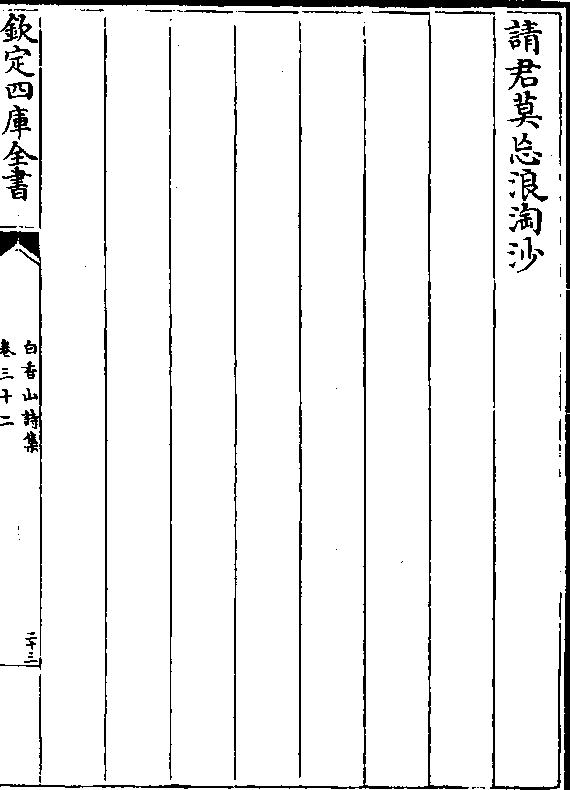 請君莫忘浪淘沙
欽定四庫全書
白香山詩集
卷三十二
二十三